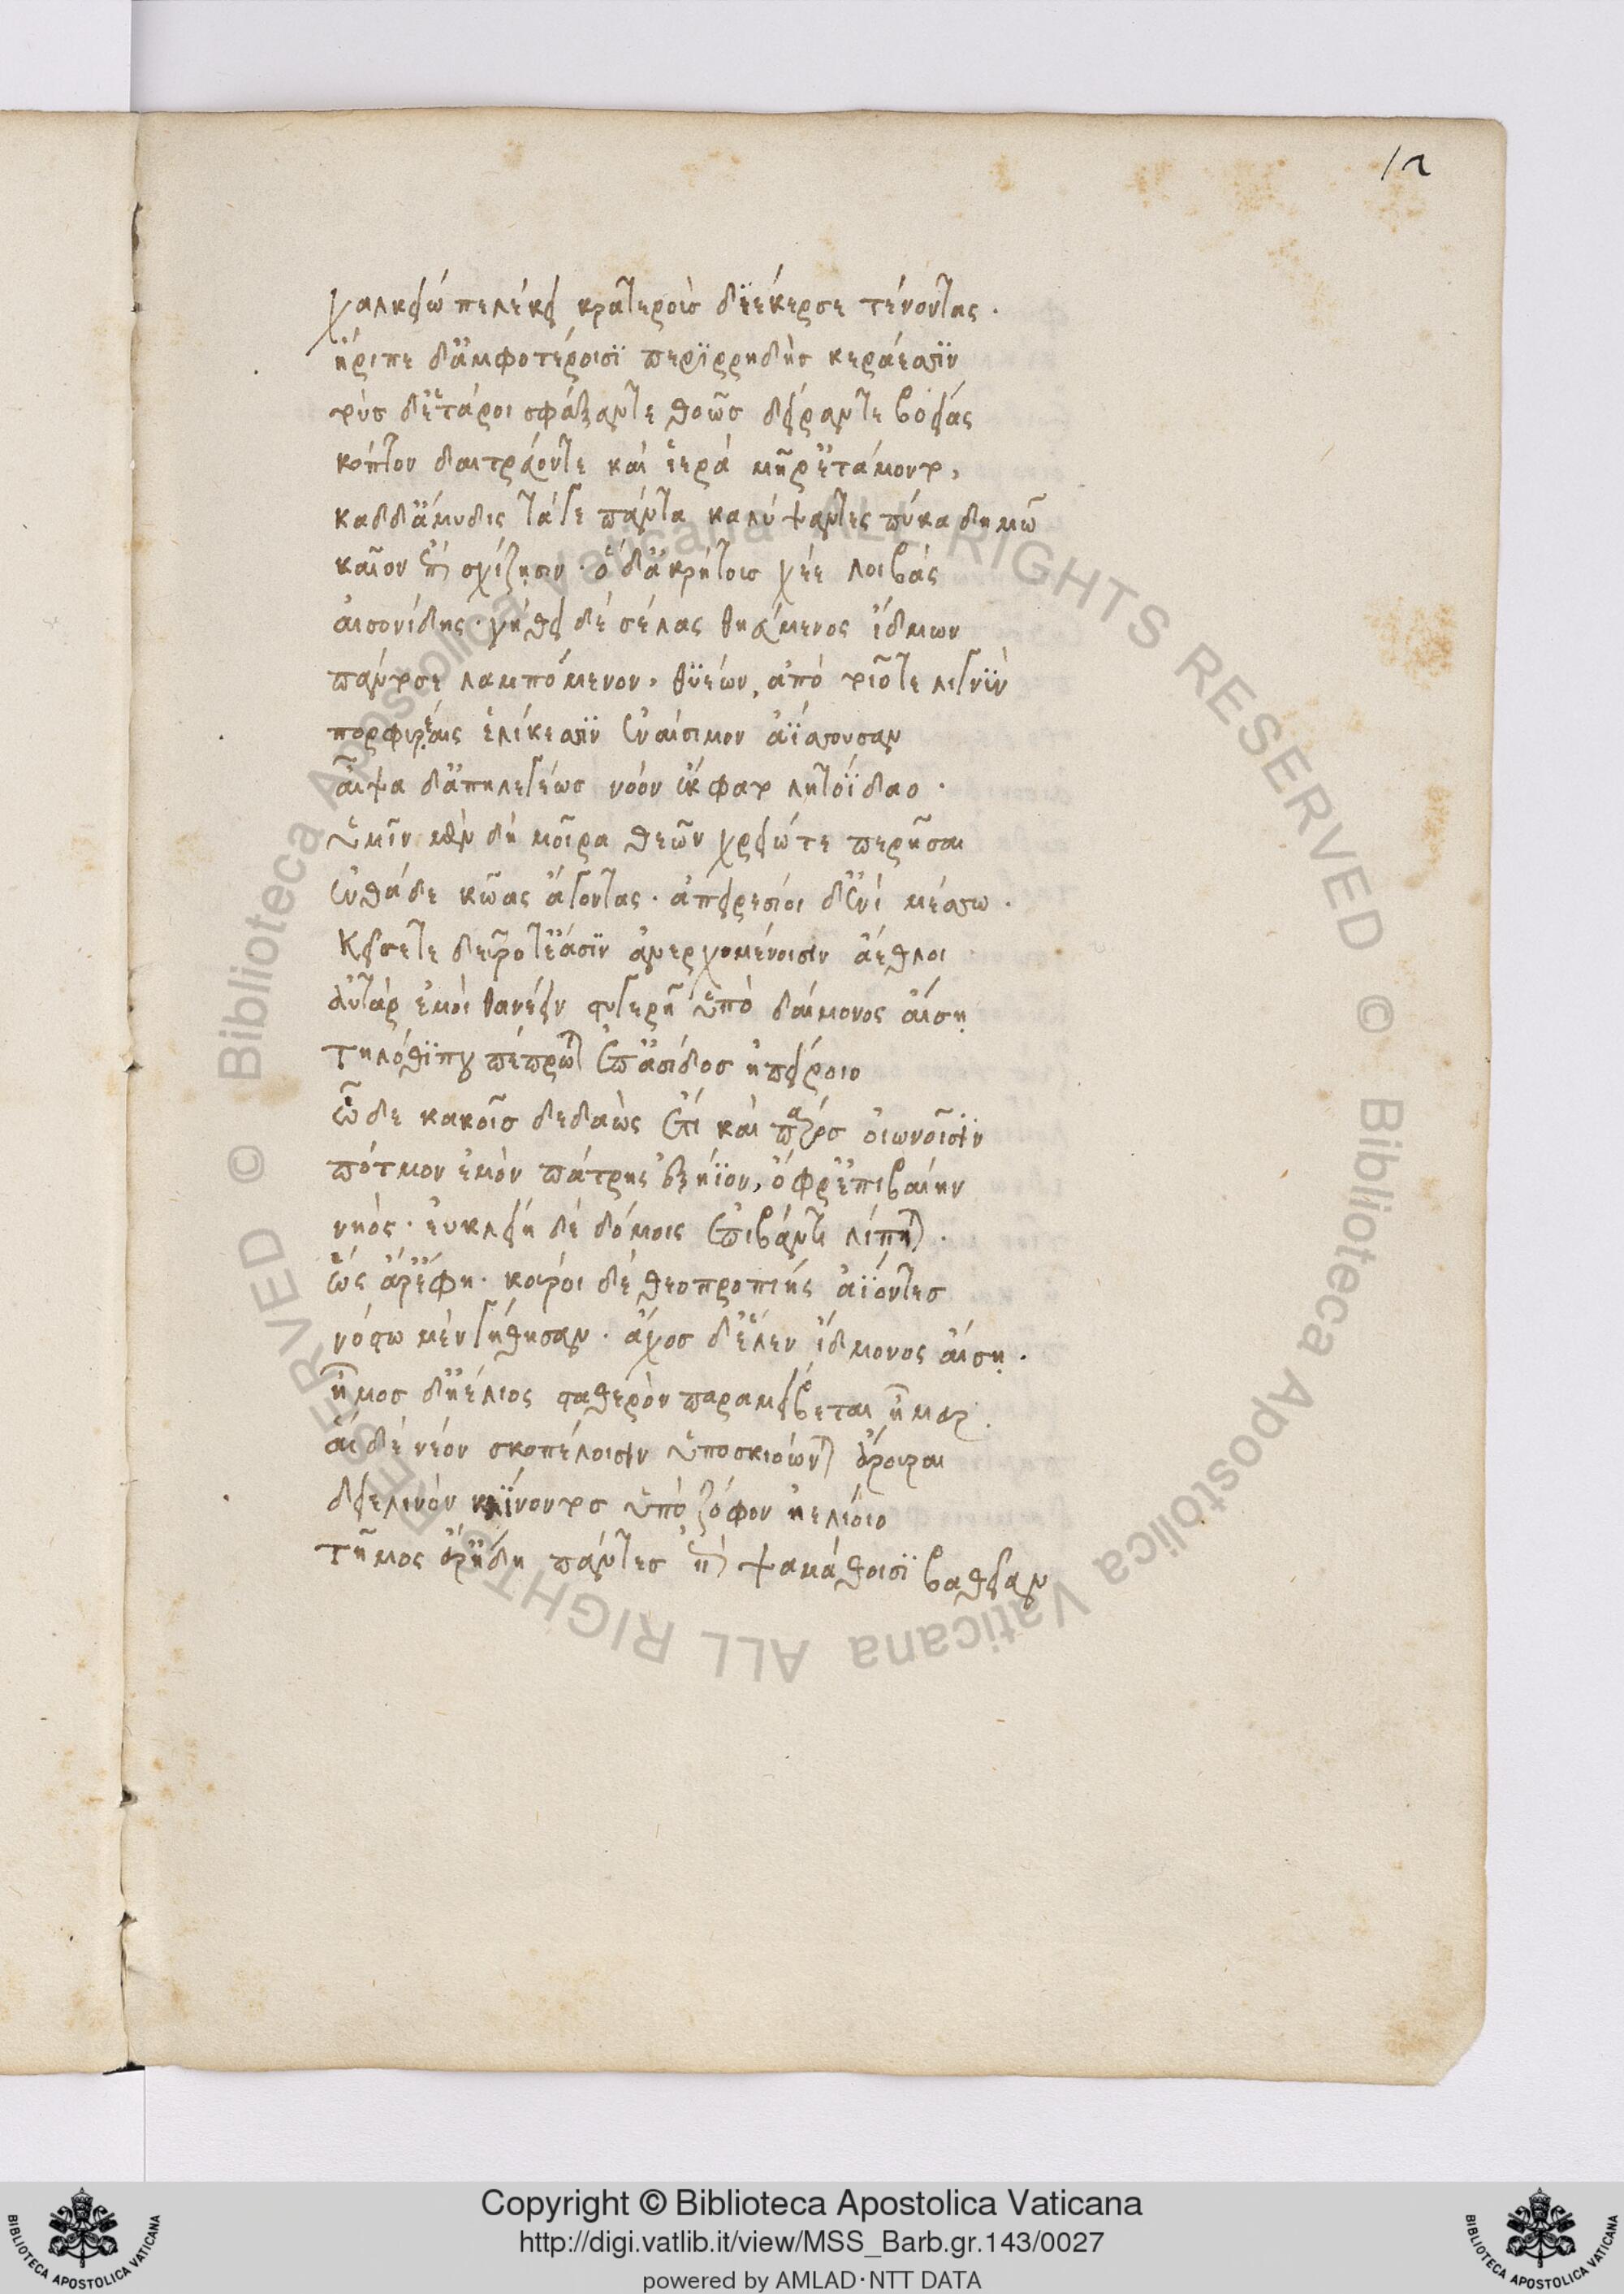 12
χαλκείω πελέκει κρατεροὺς διέκερσε τένοντας.
ἤριπε δ' ἀμφοτέροισι περιρρηδὴς κεράεσσιν
τοὺς δ' ἕταροι σφάξαντε θοῶς δείραντε βοείας
κόπτον δαιτρεύοντε καὶ ἱερὰ μῆρ' ἐτάμοντο,
καδδ' ἄμυδις τάγε πάντα καλύψαντες πύκα δημῶ
καῖον ἐπὶ σχίζησιν. ὁ δ' ἀκρήτους χέε λοιβὰς
αἰσονίδης. γήθει δὲ σέλας θηεύμενος ἴδμων
πάντοσε λαμπόμενον, θυέων, ἀπό τοιότε λιγνὺν
πορφυρέαις ἑλίκεσσιν ἐναίσιμον ἀίσσουσαν
αἶψα δ' ἀπηλεγέως νόον ἔκφατο λητοΐδαο.
ὑμῖν μὲν δὴ μοῖρα θεῶν χρειώ τε περῆσαι
ἐνθάδε κῶας ἄγοντας. ἀπειρέσιοι δ' ἐνὶ μέσσω.
κεῖσέτε δεῦρότ' ἔασιν ἀνερχομένοισιν ἄεθλοι
αὐτὰρ ἐμοὶ θανέειν στυγερῆ ὑπὸ δαίμονος αἴση
τηλόθι που πέπρωται ἐπ' ἀσίδος ἠπείροιο
ὧδε κακοῖς δεδαὼς ἔτι καὶ πάρος οἰωνοῖσιν
πότμον ἐμὸν πάτρης ἐξήιον, ὄφρ' ἐπιβαίην
νηός. ἐυκλείη δὲ δόμοις ἐπιβάντι λίπηται.
ὣς ἄρ' ἔφη. κοῦροι δὲ θεοπροπίης ἀίοντες
νόστω μὲν γήθησαν. ἄχος δ' ἕλεν ἴδμονος αἴση.
ἦμος δ' ἠέλιος σταθερὸν παραμείβεται ἦμαρ.
αἱ δὲ νέον σκοπέλοισιν ὑποσκιόωνται ἄρουραι
δειελινὸν κλίνοντος ὑπὸ ζόφον ἠελίοιο
τῆμος ἄρ' ἤδη πάντες ἐπὶ ψαμάθοισι βαθεῖαν
Copyright © Biblioteca Apostolica Vaticana
http://digi.vatlib.it/view/MSS_Barb.gr.143/0027
powered by AMLAD·NTT DATA
BIBLIOTECA APOSTOLICA VATICANA
BIBLIOTECA APOSTOLICA VATICANA
© Biblioteca Apostolica Vaticana ALL RIGHTS RESERVED
© Biblioteca Apostolica Vaticana ALL RIGHTS RESERVED